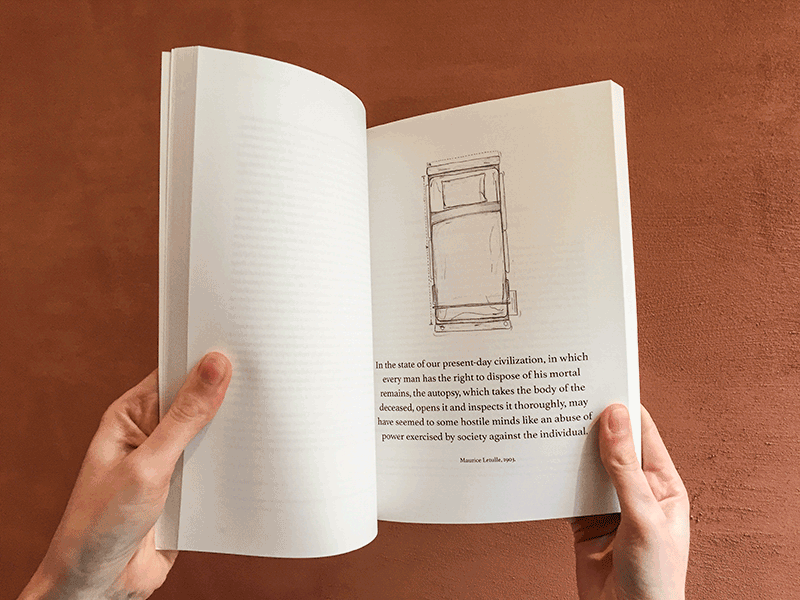 In the state of our present-day civilization, in which
every man has the right to dispose of his mortal
remains, the autopsy, which takes the body of the
deceased, opens it and inspects it thoroughly, may
have seemed to some hostile minds like an abuse of
power exercised by society against the individual.
Maurice Letulle, 1903.